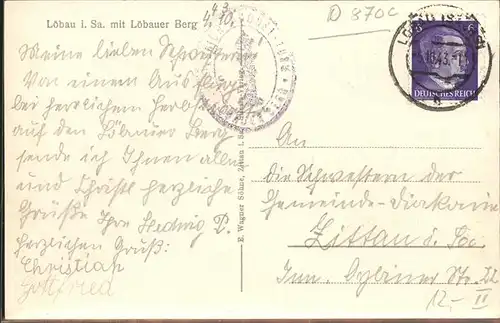 Löbau i. Sa. mit Löbauer Berg
4. 10. 43
D 870C
DEUTSCHES REICH
Meine lieben Schwestern
Von einem Ausflug
bei herrlichem Herbst
auf den Löbauer Berg
sende ich Ihnen allen
und Christl herzliche
Grüße Ihre Hedwig P.
Herzlichen Gruß:
Christian
Gottfried
E. Wagner Söhne, Zittau i. Sa.
An
die Schwestern der
Gemeinde-Diakonie
Zittau i. Sa.
Inn. Oybiner Str. II
12,-